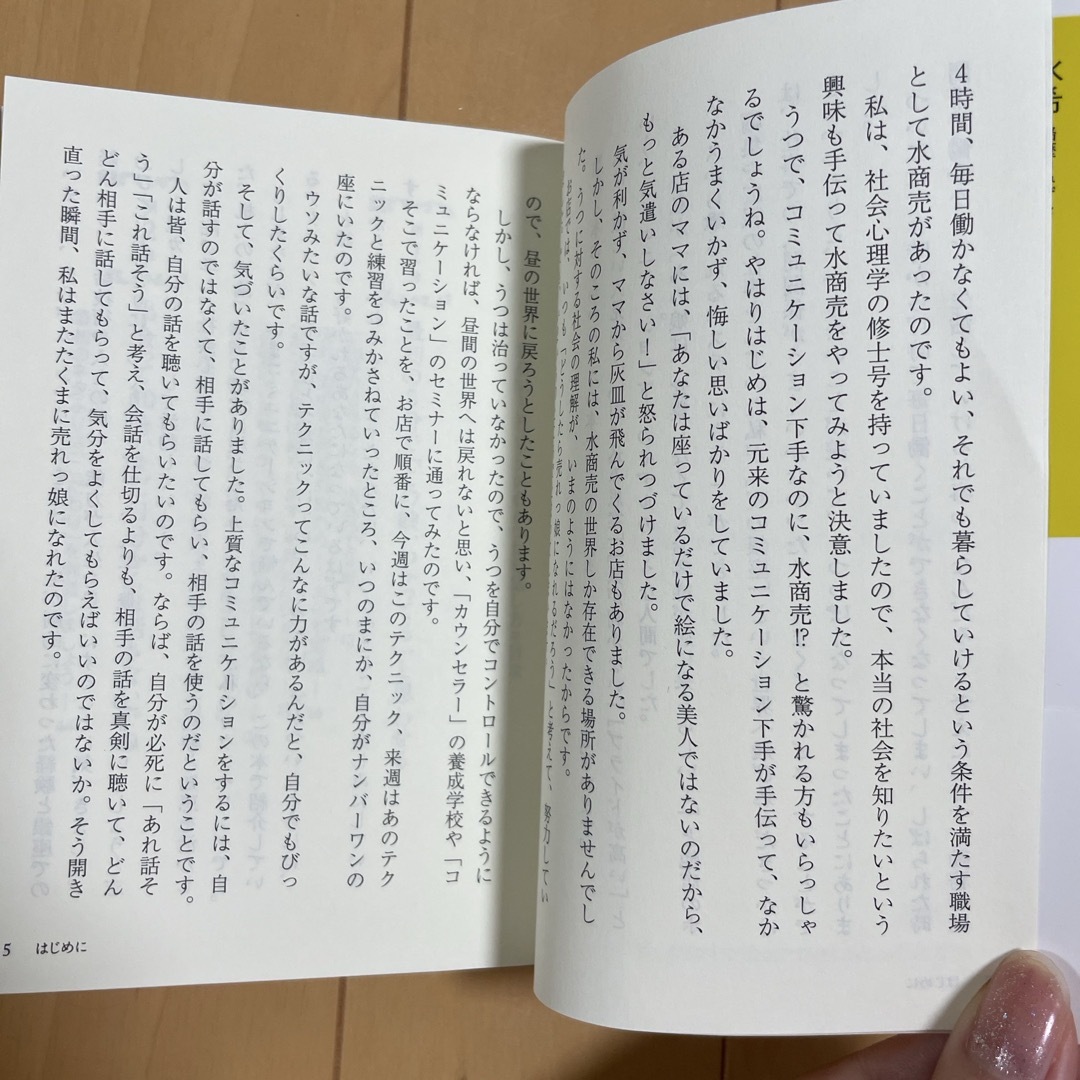 4時間、毎日働かなくてもよい、それでも暮らしていけるという条件を満たす職場
として水商売があったのです。
私は、社会心理学の修士号を持っていましたので、本当の社会を知りたいという
興味も手伝って水商売をやってみようと決意しました。
うつで、コミュニケーション下手なのに、水商売!? と驚かれる方もいらっしゃ
るでしょうね。やはりはじめは、元来のコミュニケーション下手が手伝って、なか
なかうまくいかず、悔しい思いばかりをしていました。
ある店のママには、「あなたは座っているだけで絵になる美人ではないのだから、
もっと気遣いしなさい！」と怒られつづけました。
気が利かず、ママから灰皿が飛んでくるお店もありました。
しかし、そのころの私には、水商売の世界しか存在できる場所がありませんでし
た。うつに対する社会の理解が、いまのようにはなかったからです。
お店では、いつも「どうしたら売れっ娘になれるだろう」と考えて、努力してい
ので、昼の世界に戻ろうとしたこともあります。
しかし、うつは治っていなかったので、うつを自分でコントロールできるように
ならなければ、昼間の世界へは戻れないと思い、「カウンセラー」の養成学校や「コ
ミュニケーション」のセミナーに通ってみたのです。
そこで習ったことを、お店で順番に、今週はこのテクニック、来週はあのテク
ニックと練習をつみかさねていったところ、いつのまにか、自分がナンバーワンの
座にいたのです。
ウソみたいな話ですが、テクニックってこんなに力があるんだと、自分でもびっ
くりしたくらいです。
そして、気づいたことがありました。上質なコミュニケーションをするには、自
分が話すのではなくて、相手に話してもらい、相手の話を使うのだということです。
人は皆、自分の話を聴いてもらいたいのです。ならば、自分が必死に「あれ話そ
う」「これ話そう」と考え、会話を仕切るよりも、相手の話を真剣に聴いて、どん
どん相手に話してもらって、気分をよくしてもらえばいいのではないか。そう開き
直った瞬間、私はまたたくまに売れっ娘になれたのです。
5 はじめに